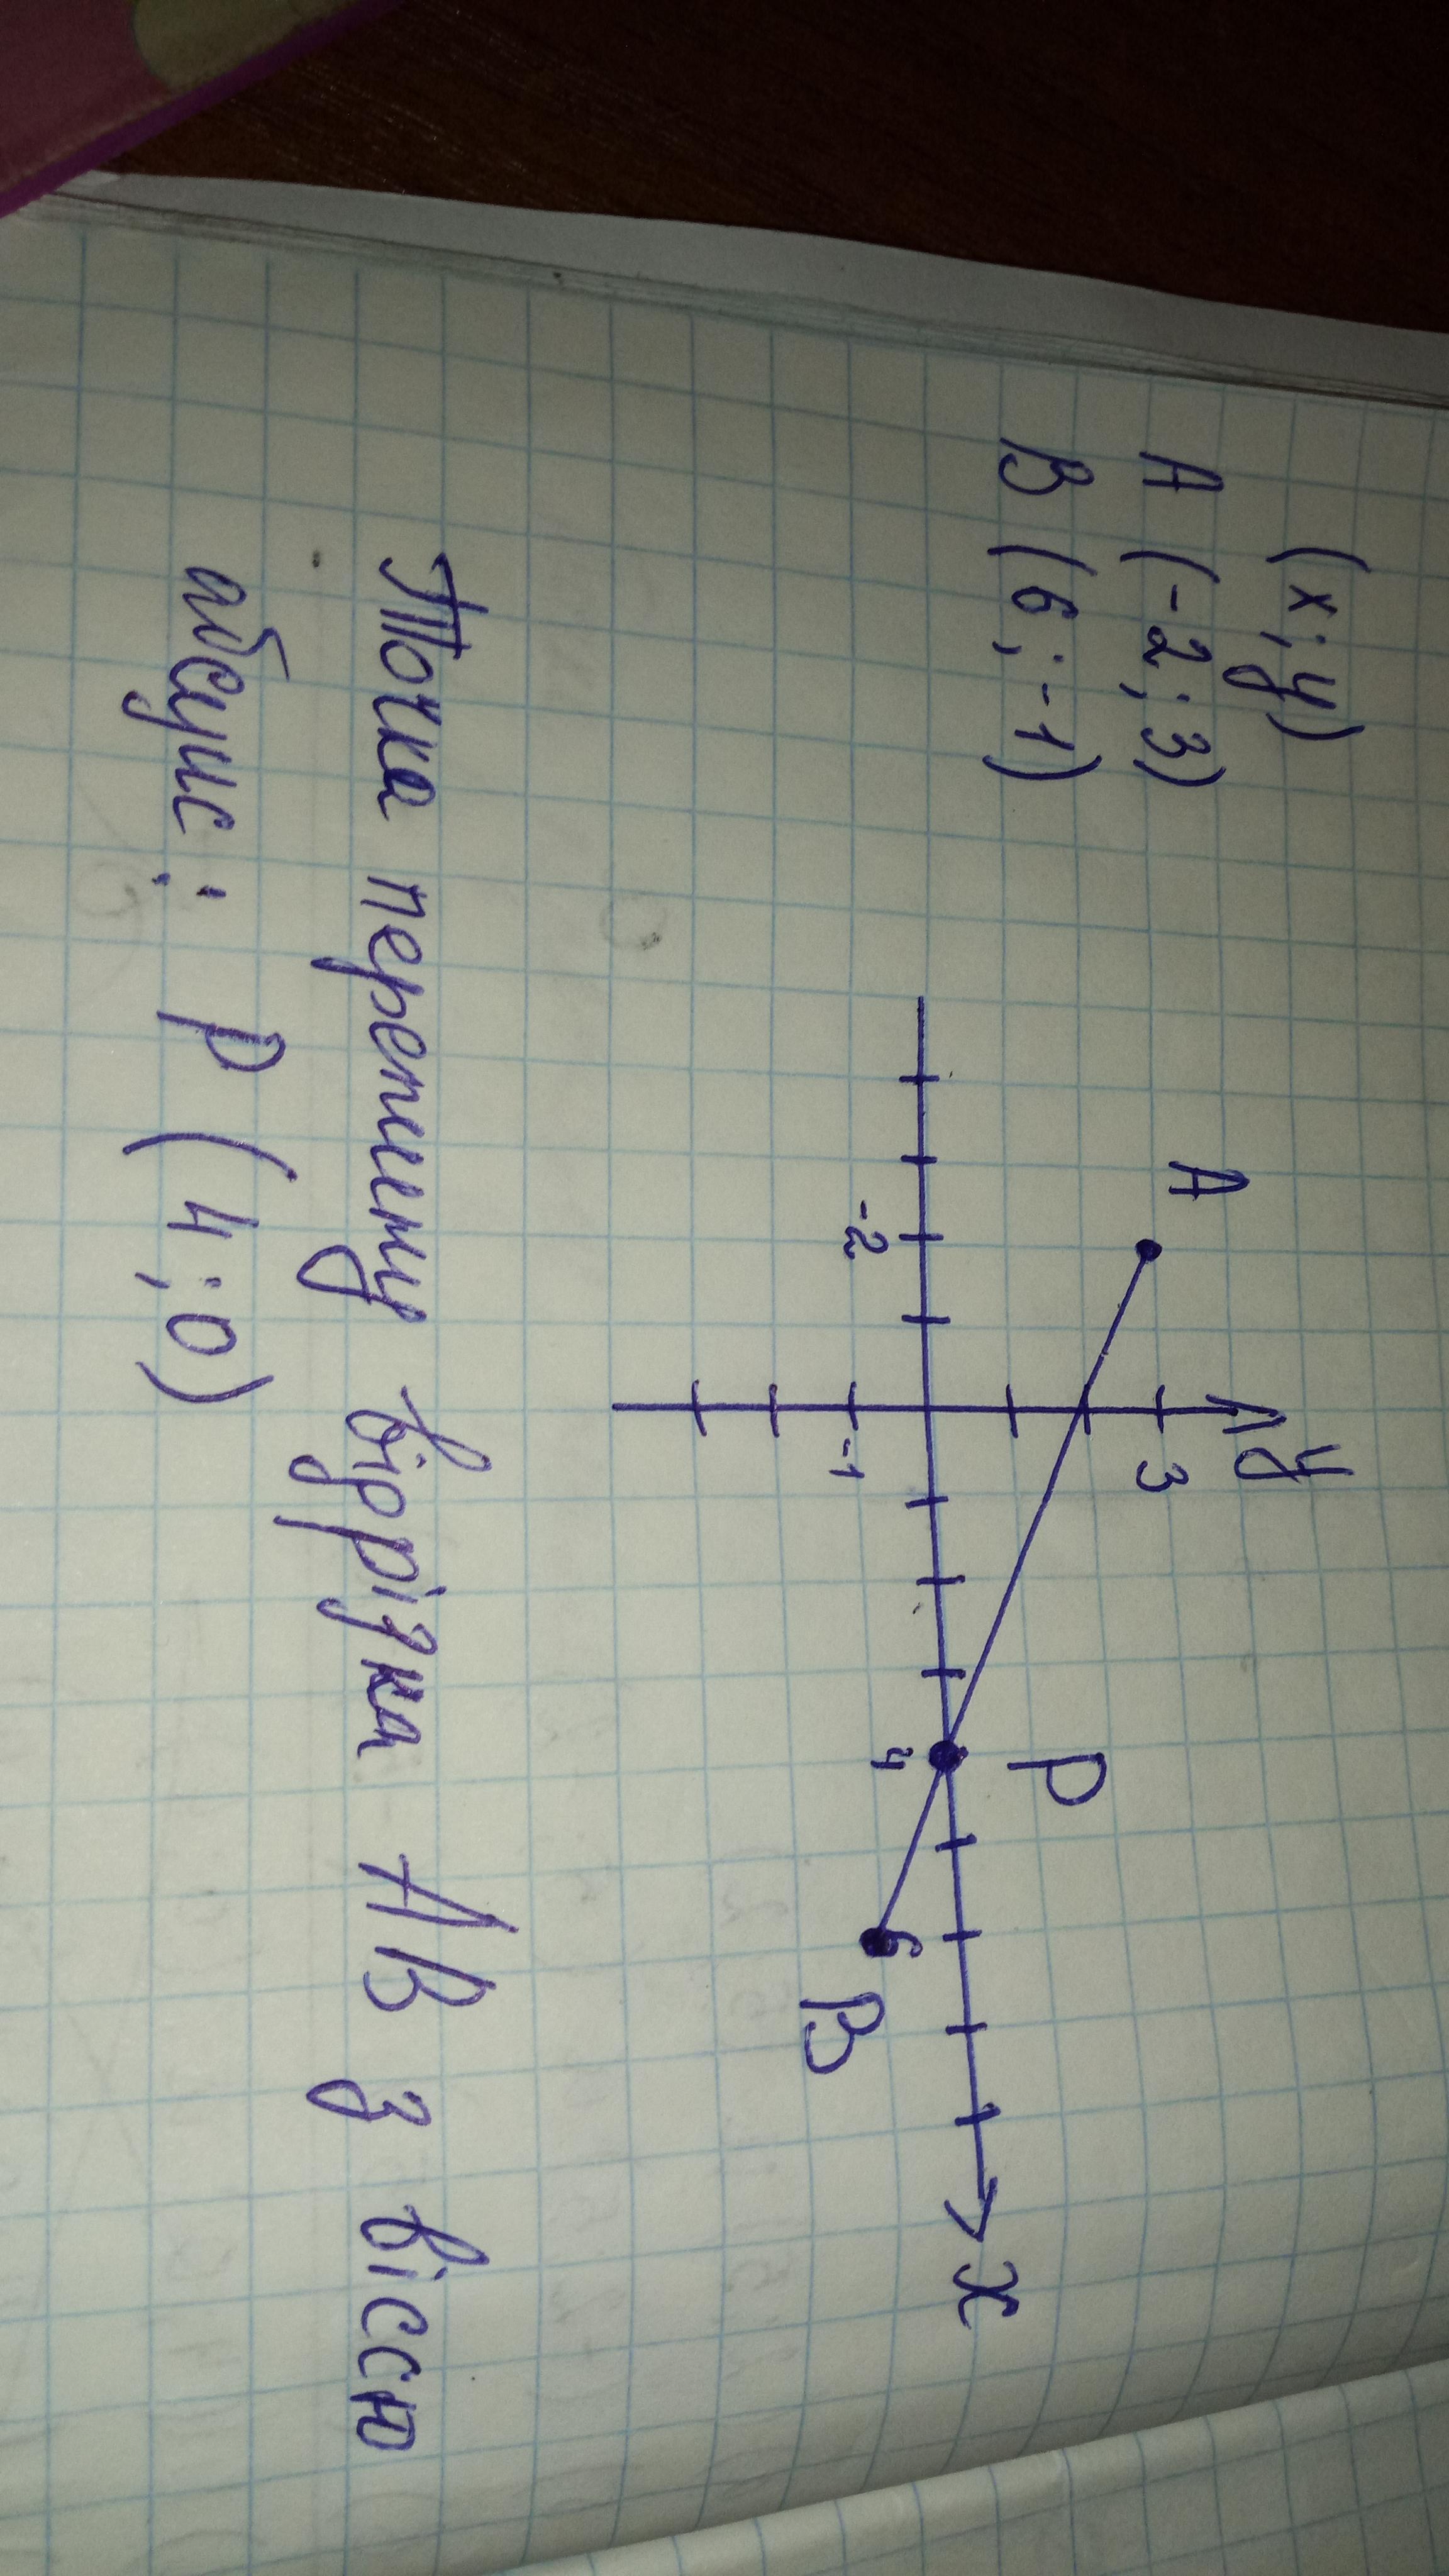 (x; y)
A (-2; 3)
B (6; -1)
A
y
3
-2
-1
P
4
6
B
x
Точка перетину відрізка AB з віссю
абсцис: P (4; 0)